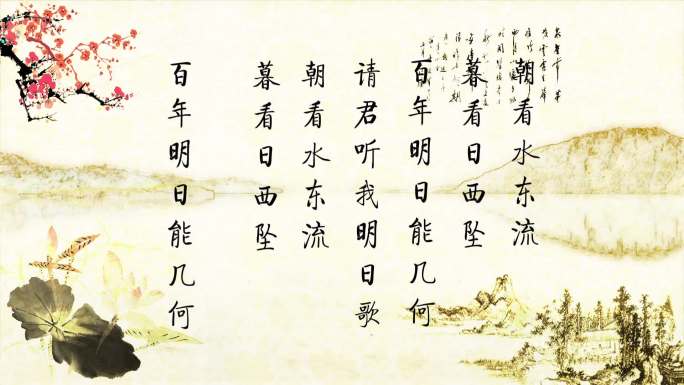 朝看水东流
暮看日西坠
百年明日能几何
请君听我明日歌
朝看水东流
暮看日西坠
百年明日能几何